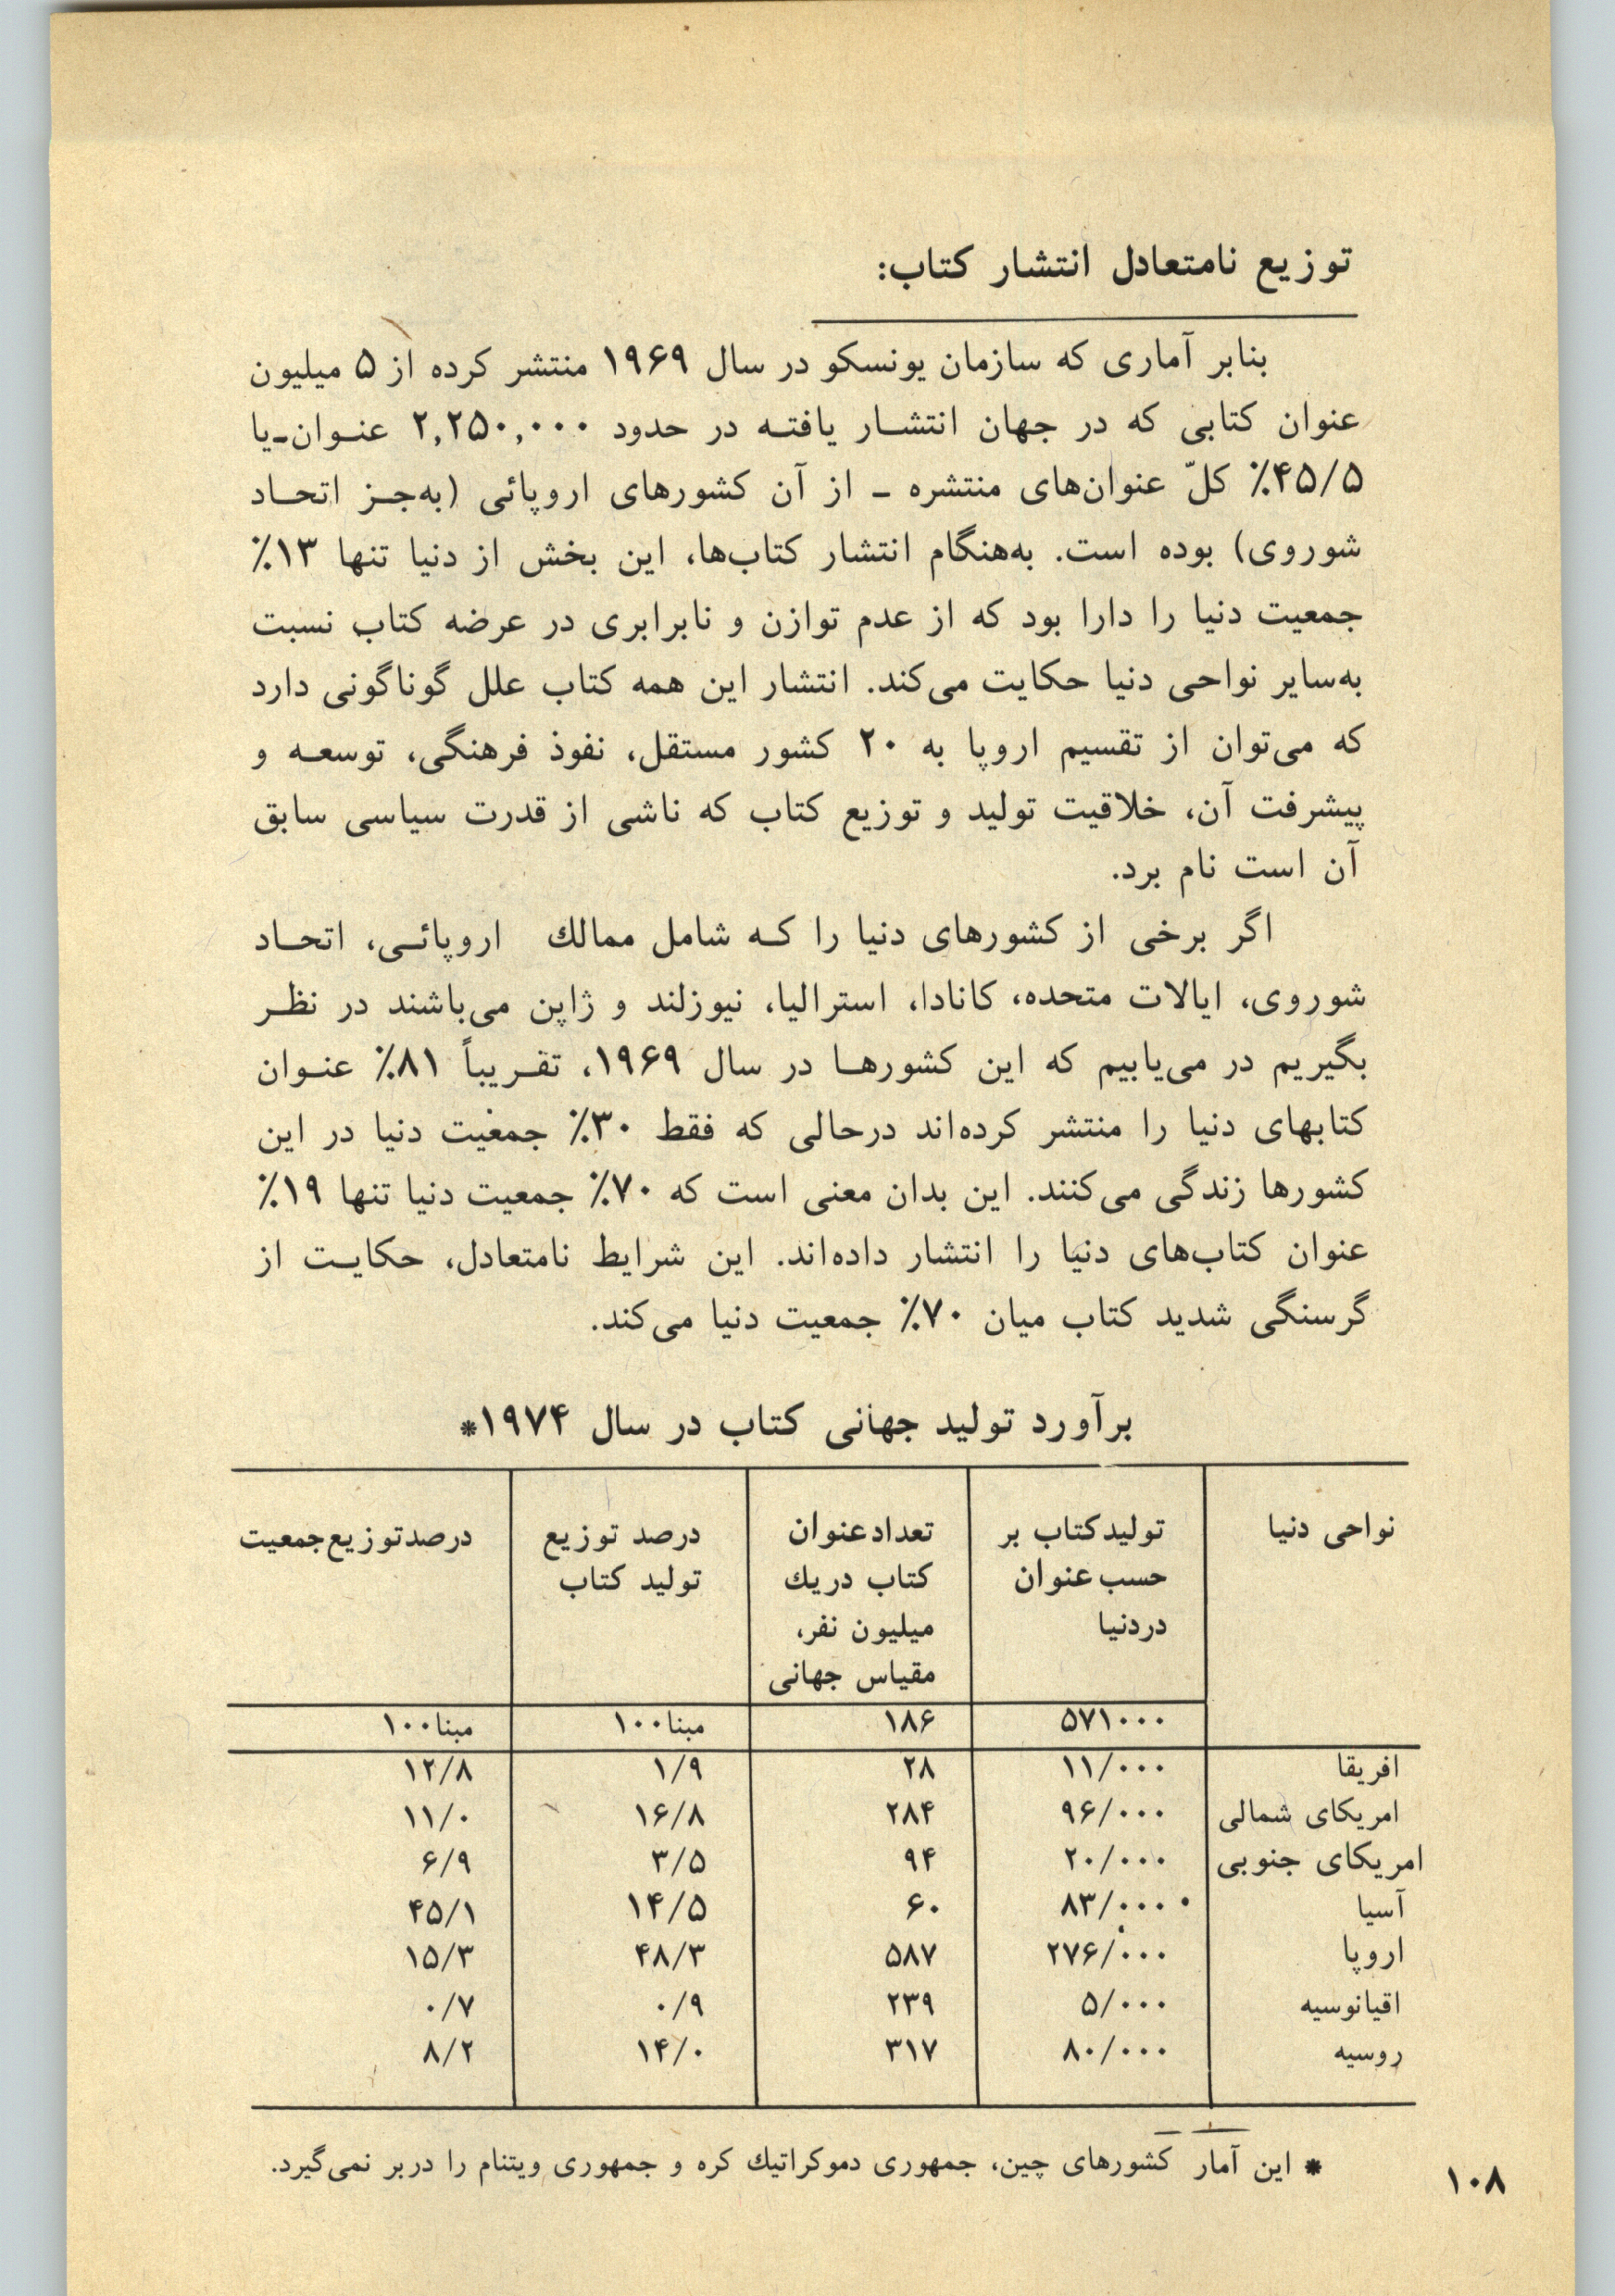 توزیع نامتعادل انتشار کتاب:
بنابر آماری که سازمان یونسکو در سال ۱۹۶۹ منتشر کرده از ۵ میلیون
عنوان کتابی که در جهان انتشـار یافتـه در حدود ۲,۲۵۰,۰۰۰ عنـوان-یا
۴۵/۵٪ کلّ عنوان‌های منتشره - از آن کشورهای اروپائی (به‌جـز اتحـاد
شوروی) بوده است. به‌هنگام انتشار کتاب‌ها، این بخش از دنیا تنها ۱۳٪
جمعیت دنیا را دارا بود که از عدم توازن و نابرابری در عرضه کتاب نسبت
به‌سایر نواحی دنیا حکایت می‌کند. انتشار این همه کتاب علل گوناگونی دارد
که می‌توان از تقسیم اروپا به ۲۰ کشور مستقل، نفوذ فرهنگی، توسعـه و
پیشرفت آن، خلاقیت تولید و توزیع کتاب که ناشی از قدرت سیاسی سابق
آن است نام برد.
اگر برخی از کشورهای دنیا را کـه شامل ممالك اروپائـی، اتحـاد
شوروی، ایالات متحده، کانادا، استرالیا، نیوزلند و ژاپن می‌باشند در نظـر
بگیریم در می‌یابیم که این کشورهـا در سال ۱۹۶۹، تقـریباً ۸۱٪ عنـوان
کتابهای دنیا را منتشر کرده‌اند درحالی که فقط ۳۰٪ جمعیت دنیا در این
کشورها زندگی می‌کنند. این بدان معنی است که ۷۰٪ جمعیت دنیا تنها ۱۹٪
عنوان کتاب‌های دنیا را انتشار داده‌اند. این شرایط نامتعادل، حکایـت از
گرسنگی شدید کتاب میان ۷۰٪ جمعیت دنیا می‌کند.
برآورد تولید جهانی کتاب در سال ۱۹۷۴*
نواحی دنیا تولیدکتاب بر تعدادعنوان درصد توزیع درصدتوزیع‌جمعیت
حسب‌عنوان کتاب دریك تولید کتاب
دردنیا میلیون نفر،
مقیاس جهانی
۵۷۱۰۰۰ ۱۸۶ مبنا۱۰۰ مبنا۱۰۰
افریقا ۱۱/۰۰۰ ۲۸ ۱/۹ ۱۲/۸
امریکای شمالی ۹۶/۰۰۰ ۲۸۴ ۱۶/۸ ۱۱/۰
امریکای جنوبی ۲۰/۰۰۰ ۹۴ ۳/۵ ۶/۹
آسیا ۸۳/۰۰۰ ۶۰ ۱۴/۵ ۴۵/۱
اروپا ۲۷۶/۰۰۰ ۵۸۷ ۴۸/۳ ۱۵/۳
اقیانوسیه ۵/۰۰۰ ۲۳۹ ۰/۹ ۰/۷
روسیه ۸۰/۰۰۰ ۳۱۷ ۱۴/۰ ۸/۲
* این آمار کشورهای چین، جمهوری دموکراتیك کره و جمهوری ویتنام را دربر نمی‌گیرد.
۱۰۸